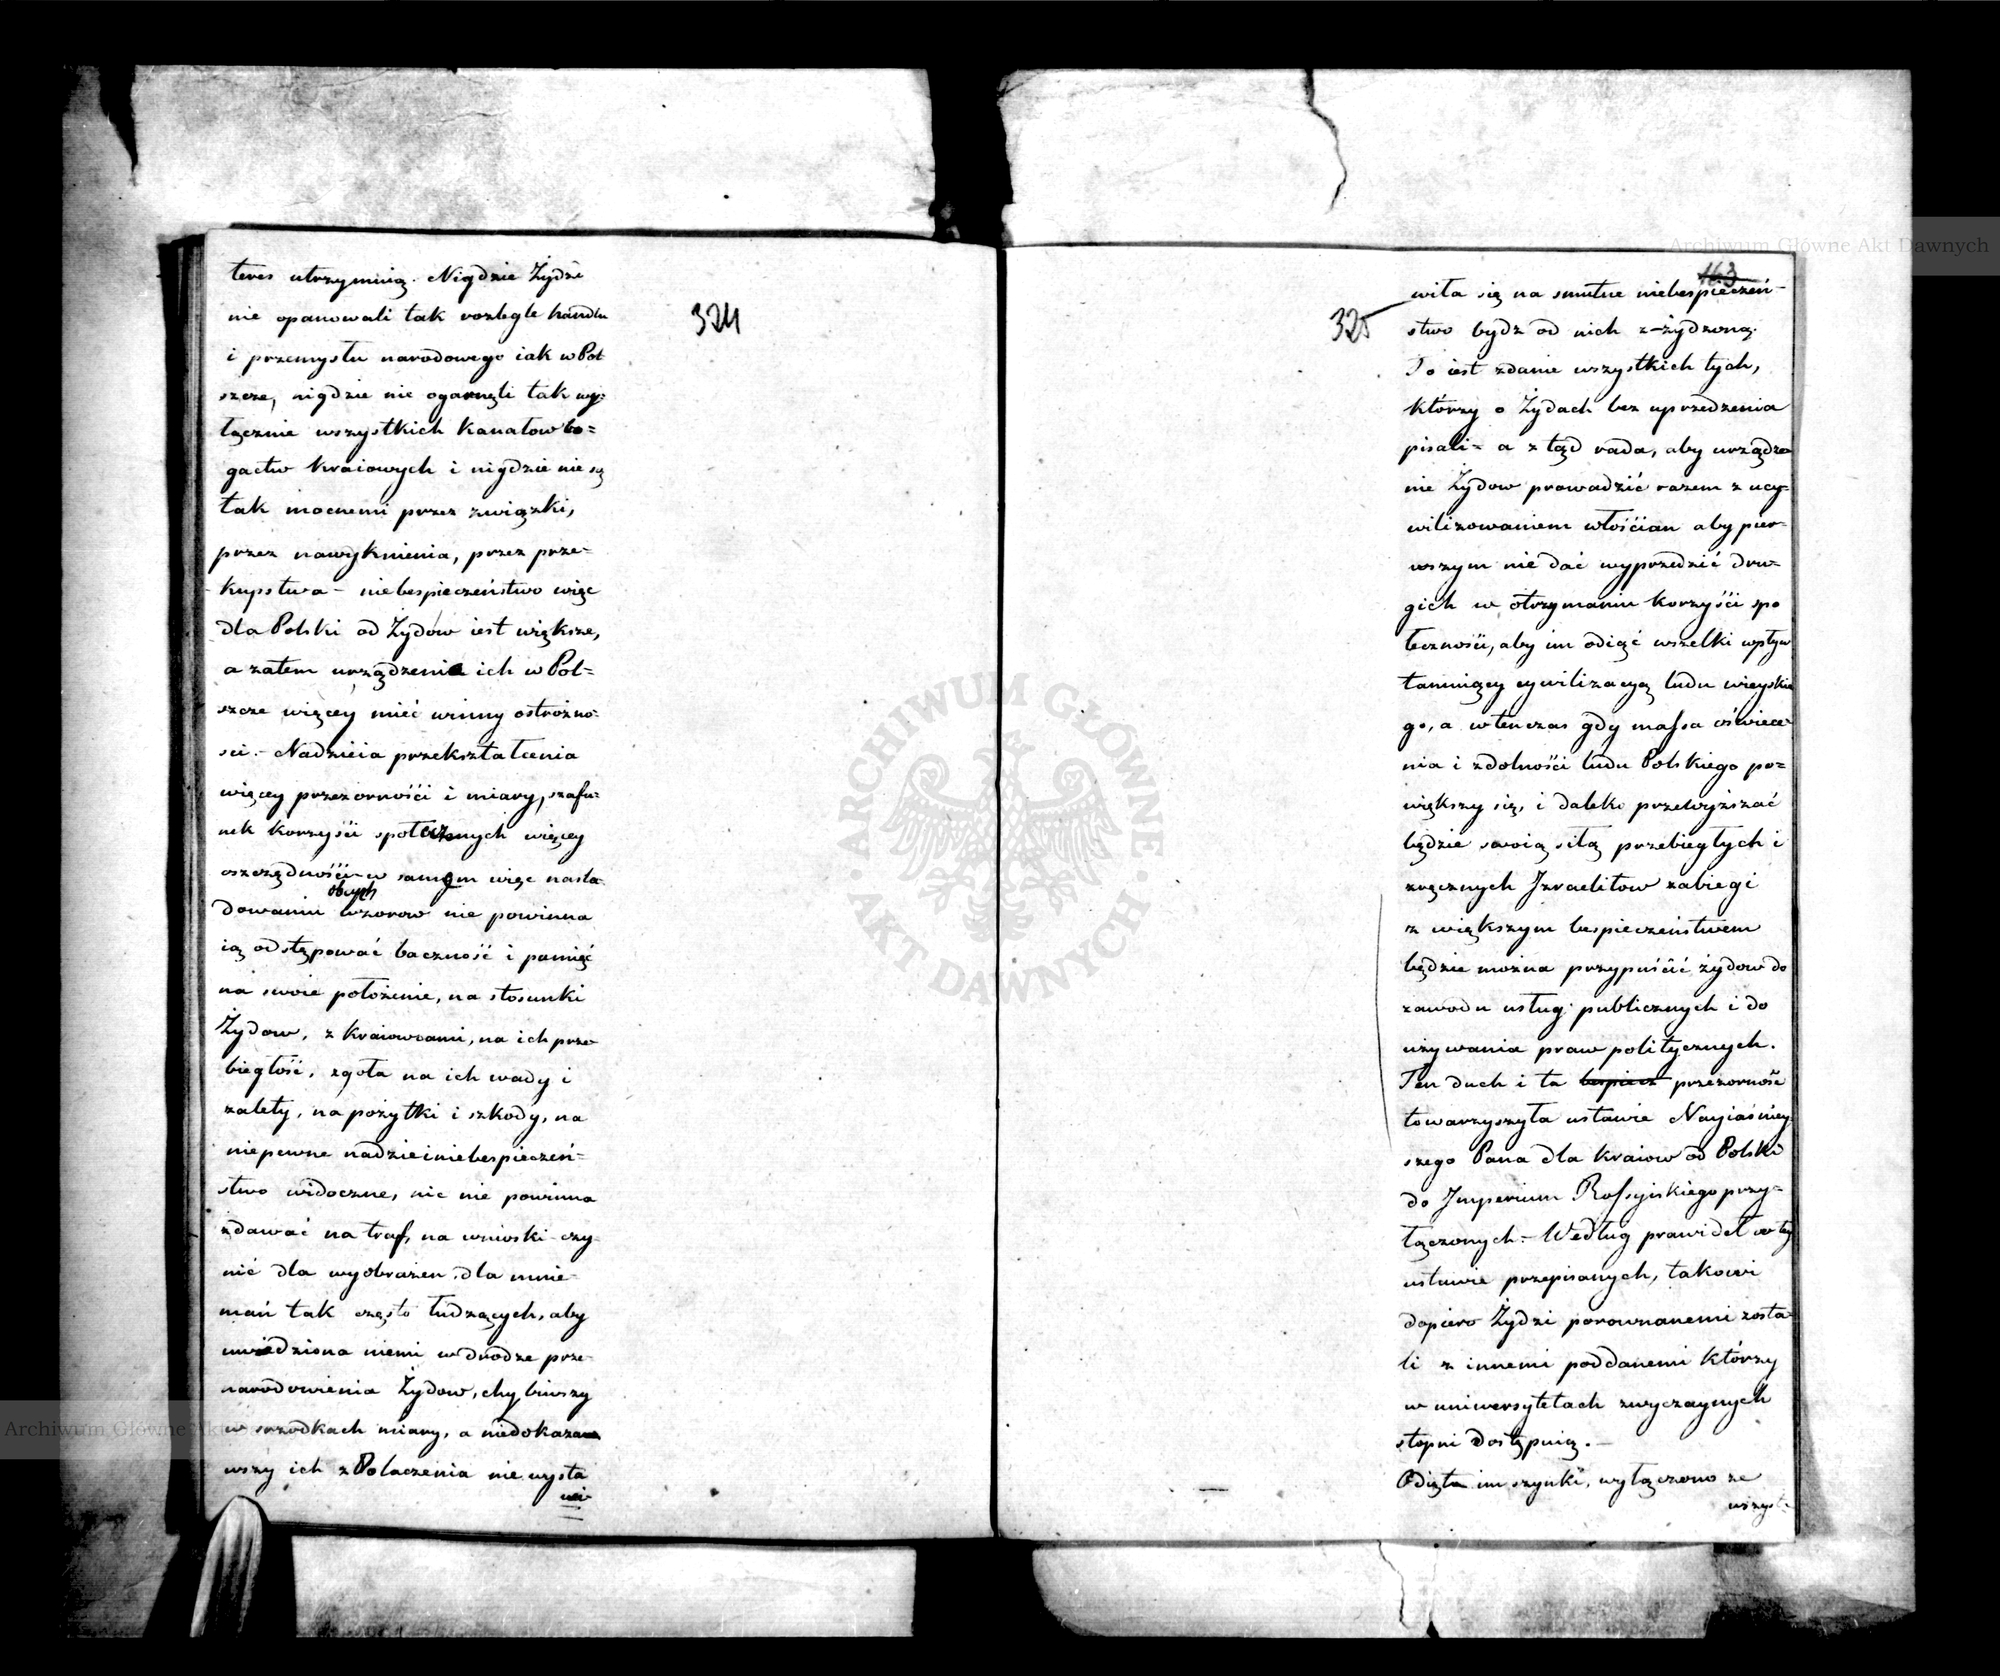 324
teres utrzymuią. Nigdzie Żydzi
nie opanowali tak rozlegle handlu
i przemysłu narodowego iak w Pol
szcze, nigdzie nie ogarnęli tak wy-
łącznie wszystkich kanałow bo=
gactw kraiowych i nigdzie nie są
tak mocnemi przez związki,
przez nawyknienia, przez prze-
kupstwa – niebespieczeństwo więc
dla Polski od Żydów iest większe,
a zatem urządzenia ich w Pol=
szcze więcey mieć winny ostrożno-
ści. – Nadzieia przekształcenia
więcey przezorności i miary, szafu-
nek korzyści społecznych więcey
oszczędności – w samym więc naśla
dowaniu obcych wzorow nie powinna
ią odstępować baczność i pamięć
na swoie położenie, na stosunki
Żydow, z kraiowcami, na ich prze
biegłość, zgoła na ich wady i
zalety, na pożytki i szkody, na
niepewne nadzieie i niebespieczeń-
stwo widoczne, nic nie powinna
zdawać na traf, na wnioski czy-
nić dla wyobrażen, dla mnie-
mań tak często łudzących, aby
uwiedziona niemi w drodze prze-
narodowienia Żydow, chybiwszy
w srzodkach miary, a niedokazaw
wszy ich z Polaczenia nie wysta
wi
163
325
wiła się na smutne niebespieczeń-
stwo bydź od nich z-żydzoną.
To iest zdanie wszystkich tych,
którzy o Żydach bez uprzedzenia
pisali – a z tąd rada, aby urządze
nie Żydow prowadzić razem z ucy-
wilizowaniem włościan aby pier-
wszym nie dać wyprzedzić dru-
gich w otrzymaniu korzyści spo
łeczności, aby im odiąć wszelki wpływ
tamuiący cywilizacyą ludu wieyskie
go, a wtenczas gdy massa oświece
nia i zdolności ludu Polskiego po=
większy się, i daleko przewyższać
będzie swoią siłą przebiegłych i
zręcznych Izraelitow zabiegi
z większym bespieczeństwem
będzie można przypuścić żydow do
zawodu usług publicznych i do
używania praw politycznych.
Ten duch i ta bespiecz przezorność
towarzyszyła ustawie Nayiaśniey
szego Pana dla kraiow od Polski
do Imperium Rossyiskiego przy-
łączonych. – Według prawideł w tey
ustawie przepisanych, takowi
dopiero Żydzi porownanemi zosta-
li z innemi poddanemi którzy
w uniwersytetach zwyczaynych
stopni dostępuią. –
Odięto im szynki, wyłączono ze
wszyst-